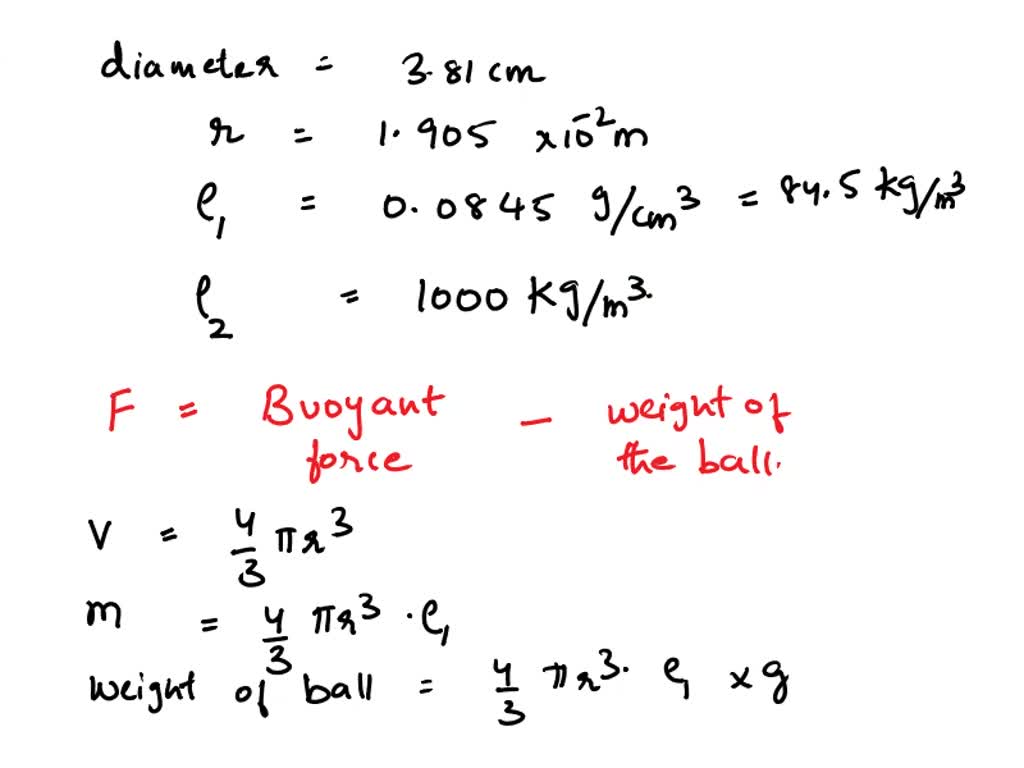 diameter = 3.81 cm
r = 1.905 x10⁻² m
ρ₁ = 0.0845 g/cm³ = 84.5 kg/m³
ρ₂ = 1000 kg/m³.
F = Buoyant force - weight of the ball.
V = 4/3 πr³
m = 4/3 πr³ · ρ₁
weight of ball = 4/3 πr³. ρ₁ x g